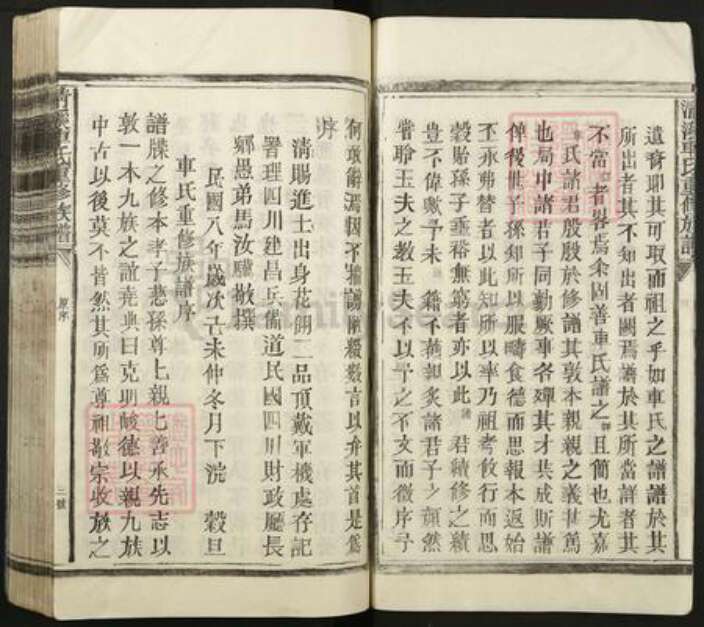 遺裔耶其可取而祖之乎如車氏之譜譜於其
所出者其不知出者闕焉譜於其所當詳者其
不當 者畧焉余固善車氏譜之 且簡也尤嘉
氏諸君殷殷於修譜其敦本親親之義甚篤
也局中諸君子同勤厥事各殫其才共成斯譜
俾後世子孫知所以服疇食德而思報本返始
不承弗替者以此知所以率乃祖考攸行而思
穀貽孫子垂裕無窮者亦以此 君續修之績
豈不偉歟予未 籍不獲親炙諸君子之顔然
嘗聆玉夫之教玉夫不以予之不文而徵序予
何敢辭 因不 數言以弁其首是爲
序
清賜進士出身花翎二品頂戴軍機處存記
署理四川建昌兵備道民國四川財政廳長
鄉愚弟馬汝驥敬撰
民國八年歲次己未仲冬月下浣 穀旦
車氏重修族譜序
譜牒之修本孝子慈孫尊上親上善承先志以
敦一本九族之誼堯典曰克明峻德以親九族
中古以後莫不皆然其所爲尊祖敬宗收族之
車氏重修族譜
原序
二號